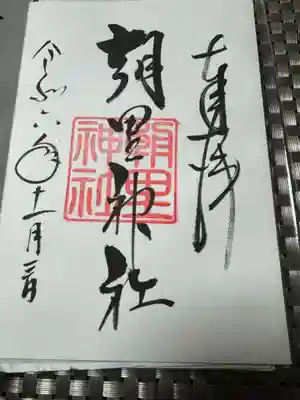 奉拝
朝里神社
朝里神社
令和六年十一月三日